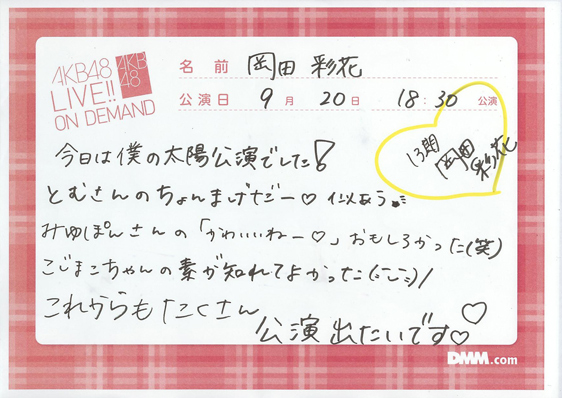 AKB48
LIVE!!
ON DEMAND
AKB
48
名前 岡田彩花
公演日 9月 20日 18:30 公演
13期
岡田
彩花
今日は僕の太陽公演でした!
とむさんのちょんまげだー♡ 似あう
みゆぽんさんの「かわいいねー♡」おもしろかった(笑)
こじまこちゃんの素が知れてよかった
これからもたくさん
公演出たいです♡♡
DMM.com